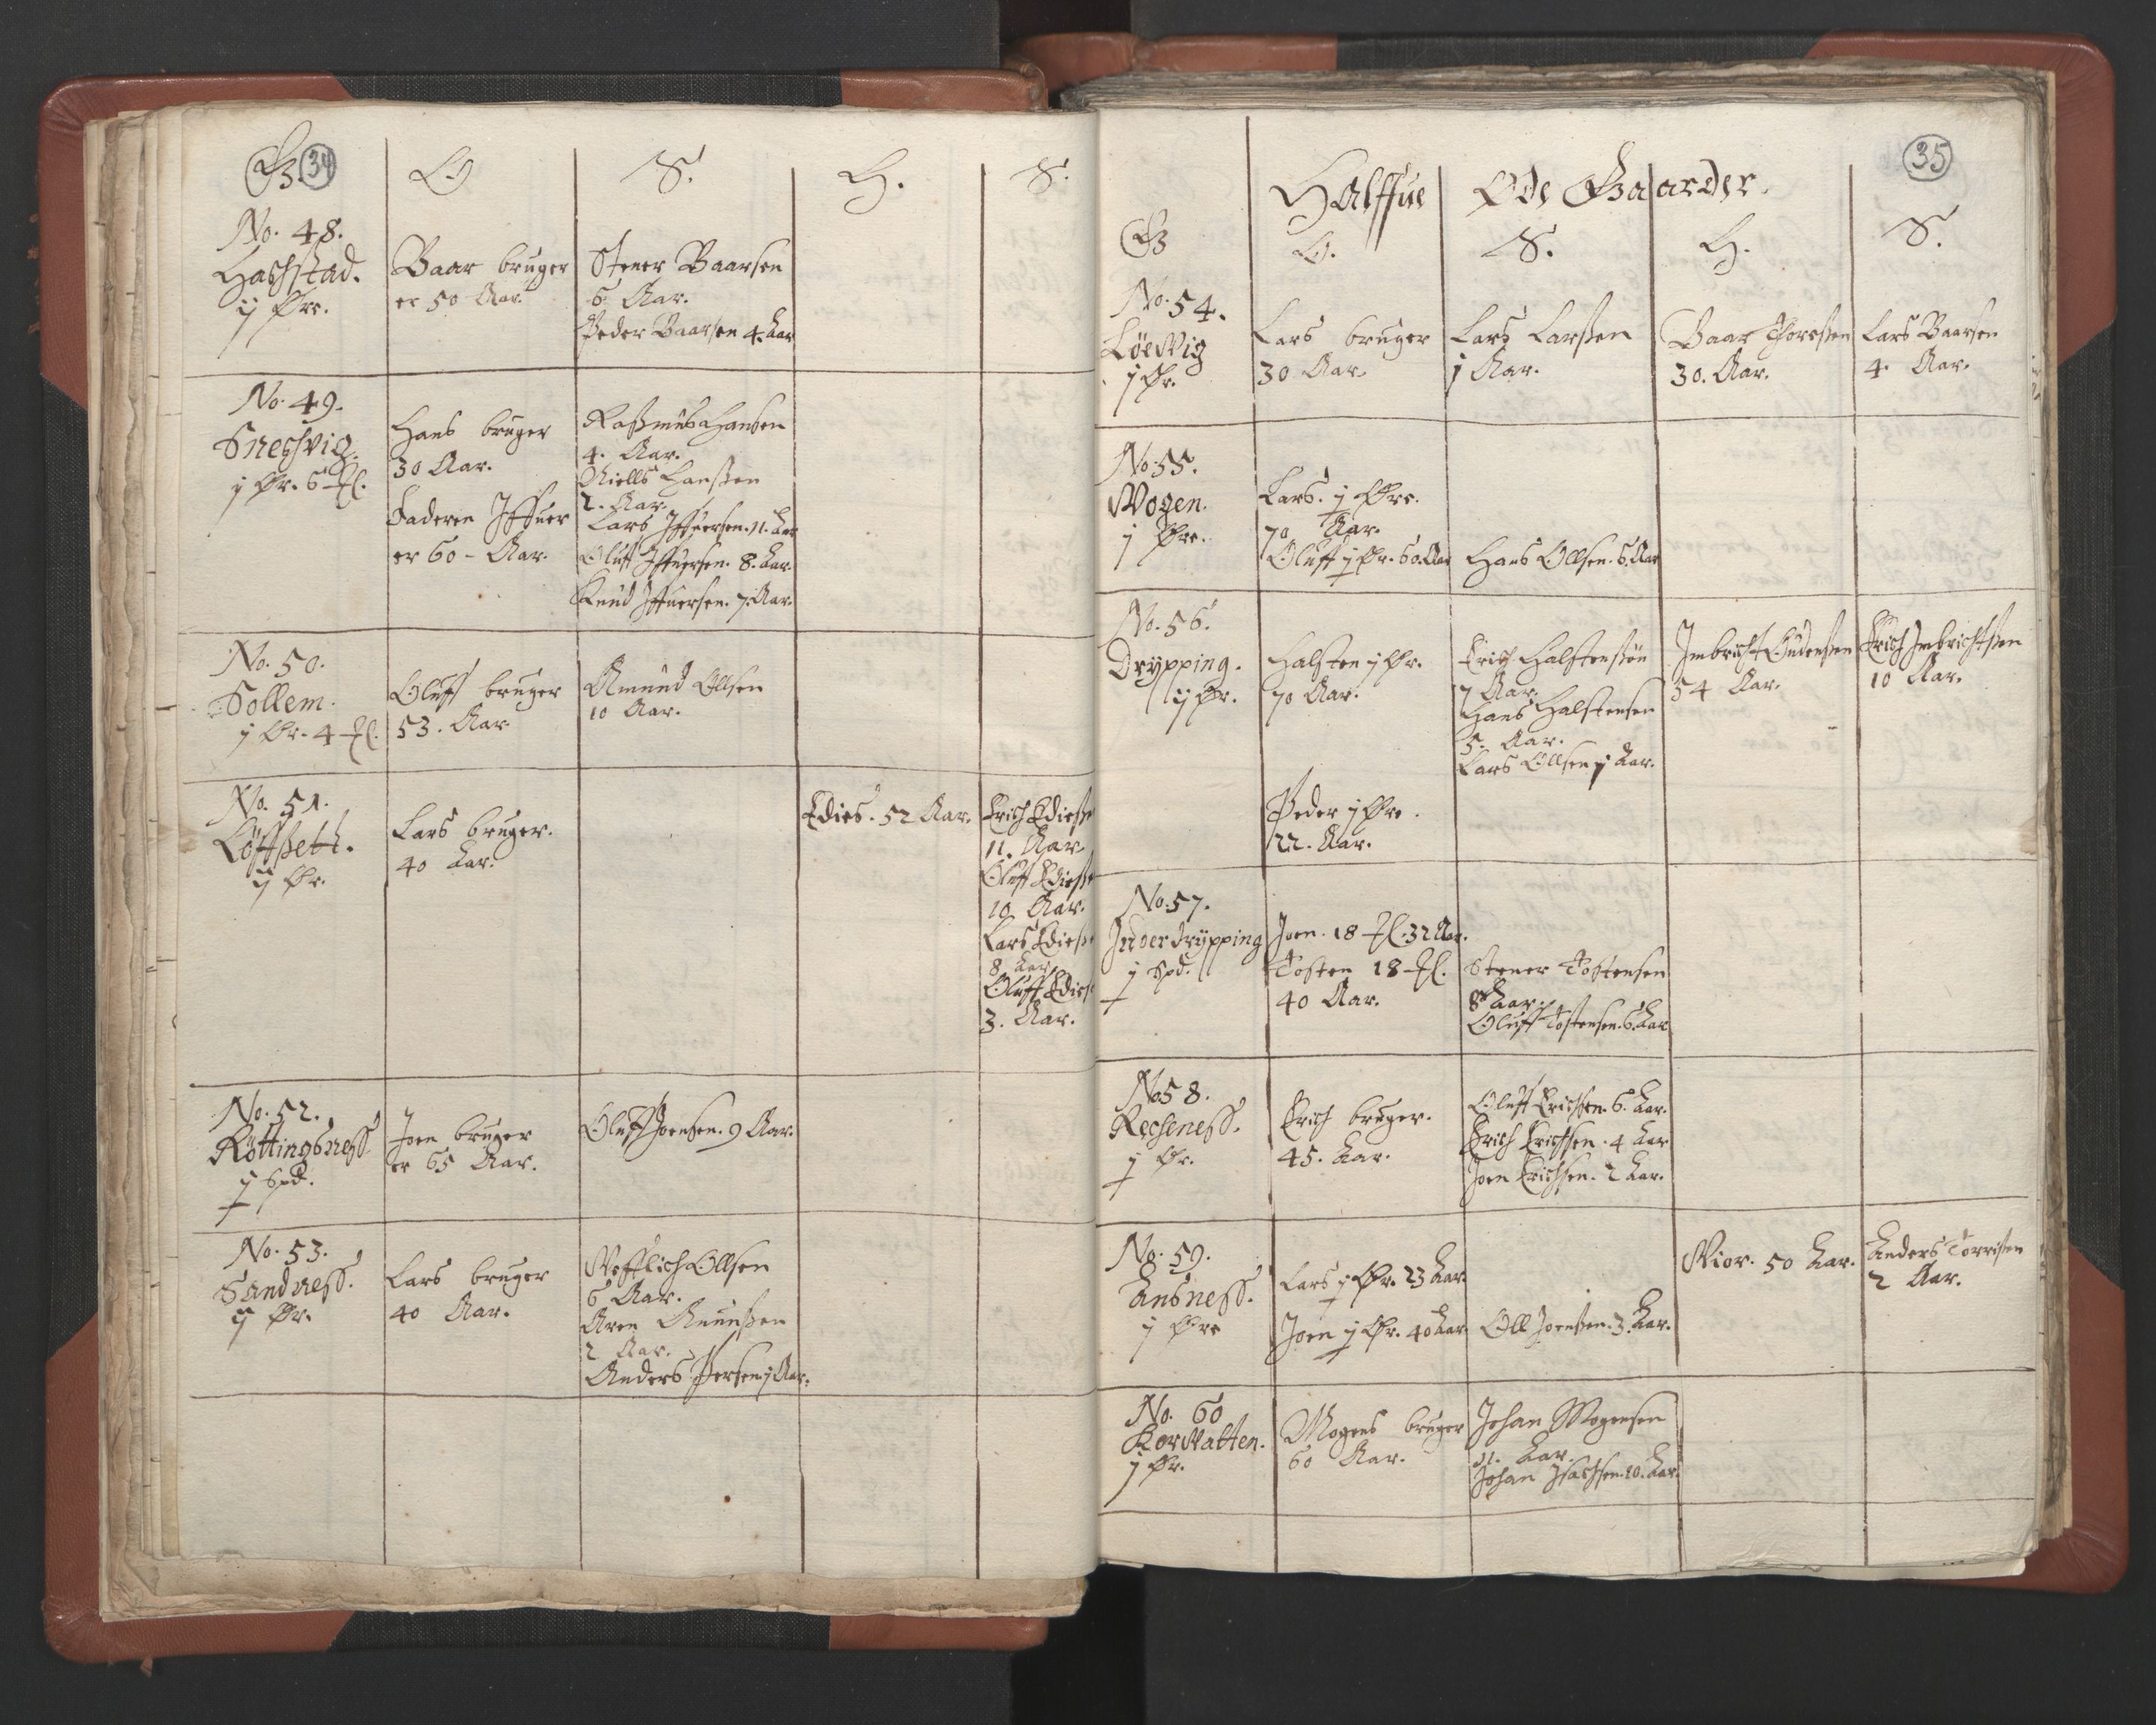 G. 34
O
S.
H.
S.
No. 48.
Haststad.
ij Ørr.
Baar bruger
er 50 Aar.
Stener Baarsen
6 Aar.
Peder Baarsen 4. Aar
No. 49.
Snesvig.
j Ør. 6
Hans bruger
30 Aar.
Faderen Iffuer
er 60 - Aar.
Rasmus Hansen
4. Aar.
Niells Hanssen
2. Aar.
Lars Iffuersen. 11. Aar
Oluff Iffuersen. 8. Aar.
Knud Iffuersen. 7. Aar.
No. 50.
Sollem.
j Ør. 4
Oluff bruger
53. Aar
Amund Ollsen
10 Aar.
No. 51.
Löffsett.
ij Ør.
Lars bruger.
40 Aar.
Edies. 52 Aar.
Erich Ediesse
11. Aar
Oluff Ediesse
10 Aar.
Lars Ediesse
8 Aar
Oluff Edies
3. Aar.
No. 52.
Röttingsness
j Spd.
Joen bruger
er 65 Aar.
Oluff Joensen. 9 Aar.
No. 53.
Sandness.
ij Ør.
Lars bruger
40 Aar.
Ollsen
6 Aar.
Aren
2 Aar.
Anders Persen j Aar.
35
Halffue Øde Gaarder.
G
O.
S.
H.
S.
No. 54.
Löeviig
j Ør.
Lars bruger
30 Aar.
Lars Larssen
j Aar.
Baar Thoressen
30. Aar.
Lars Baarsen
4. Aar.
No. 55.
Wogen.
j Ørr.
Lars. j Ørr.
70 Aar.
Oluff j Ør. 60. Aar
Hans Ollsen. 6. Aar
No. 56.
Drypping.
ij Ør.
Halsten j Ør.
70 Aar.
Erich Halstensøn
7 Aar.
Hans Halstensen
5. Aar.
Lars Ollsen j Aar.
Imbricht Gudensen
54 Aar.
Erich Imbrichtsen
10 Aar.
Peder j Ørr.
22. Aar.
No. 57.
Inder drypping
j Spd.
Joen. 18 32 Aar.
Tosten 18
40 Aar.
Stener Tostensen
8 Aar.
Oluff Tostensen. 6. Aar
No 58.
Recseness.
j Ør.
Erich bruger.
45. Aar.
Oluff Erichsen. 6. Aar.
Erich Erichsen. 4 Aar
Joen Erichsen. 2 Aar.
No. 59.
Ansness.
j Ørr
Lars j Ør. 23 Aar.
Joen j Ør. 40 Aar
Oll Joensen. 3. Aar.
50 Aar.
Anders Torrisen
2 Aar.
No. 60
Korsvatten.
j Ør.
Mogens bruger
60 Aar.
Johan Mogensen
11. Aar.
Johan Isachsen. 10. Aar.